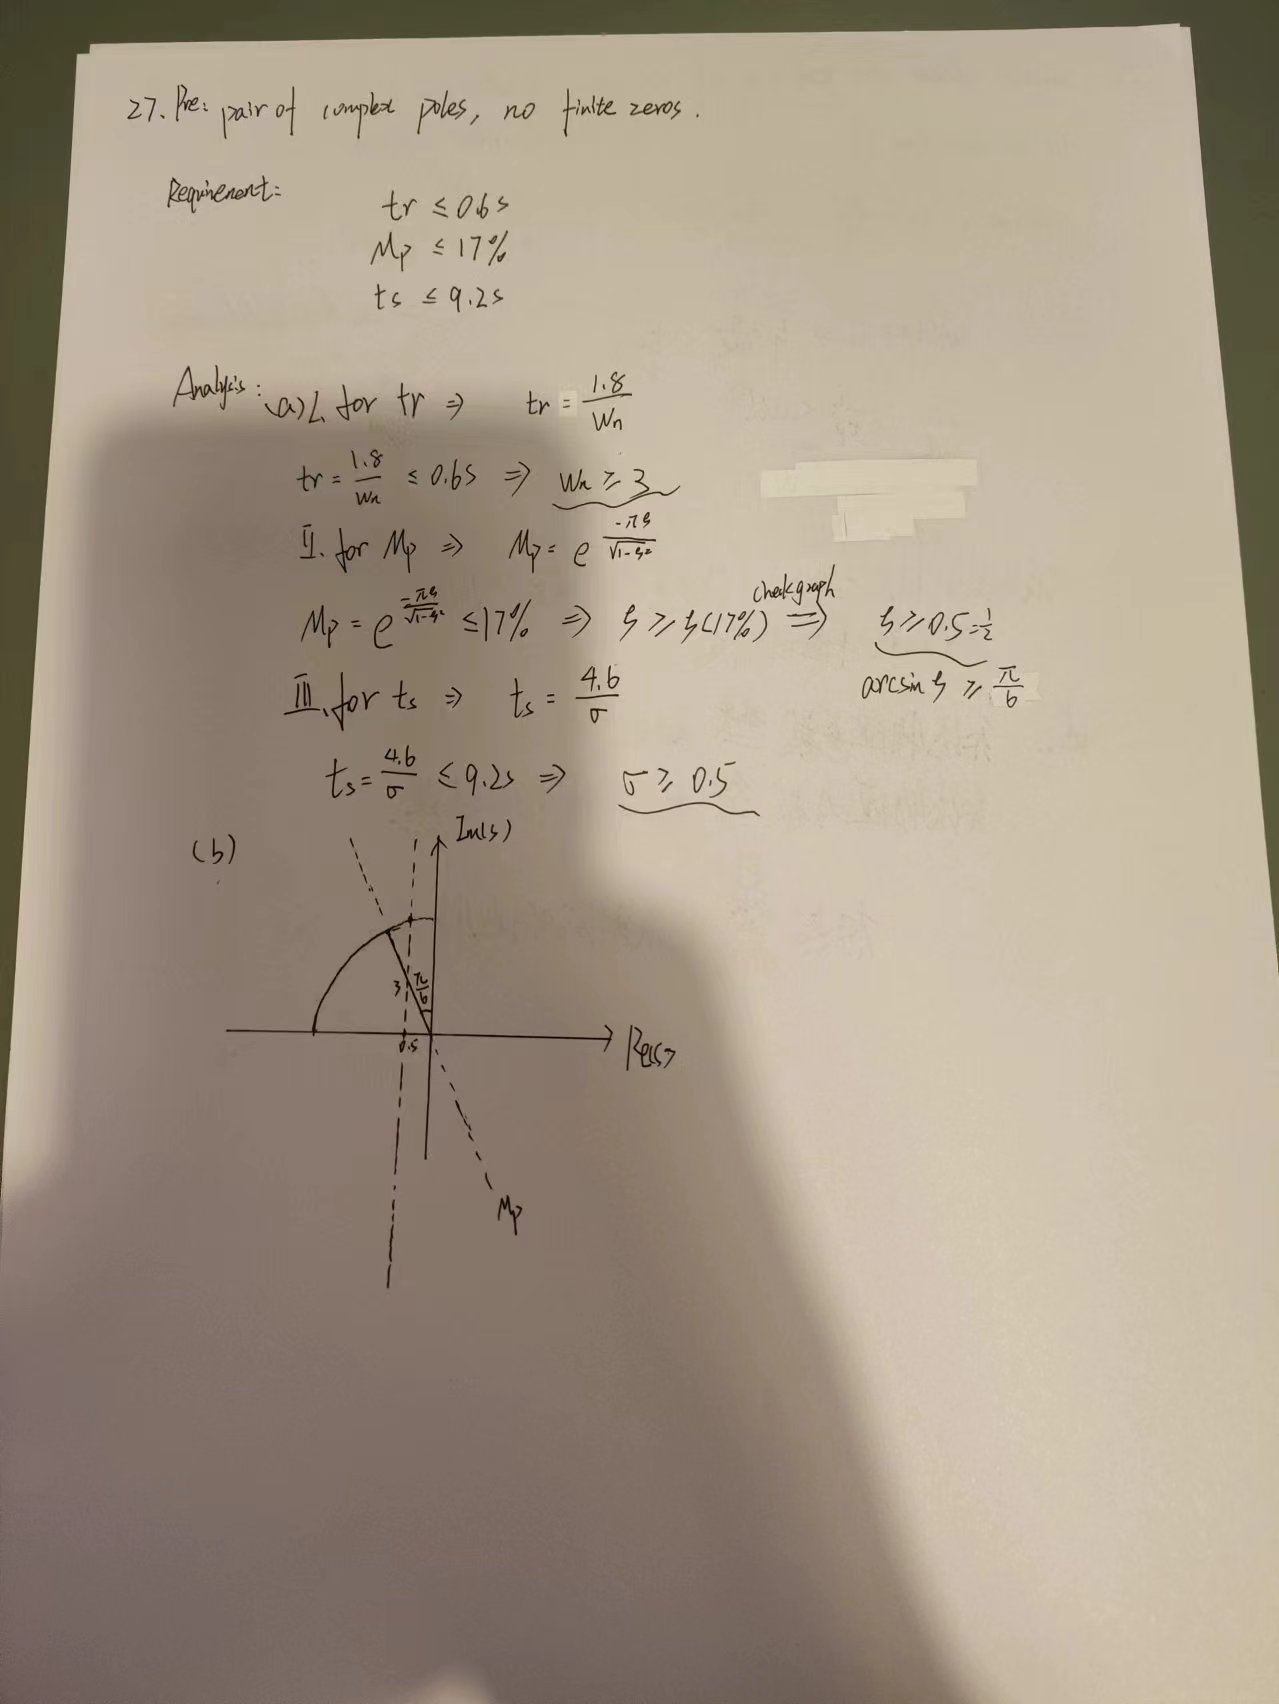 27. Pre: pair of complex poles, no finite zeros.
Requirement:
tr ≤ 0.6s
Mp ≤ 17%
ts ≤ 9.2s
Analysis: (a) I. for tr ⇒ tr = 1.8/Wn
tr = 1.8/Wn ≤ 0.6s ⇒ Wn ≥ 3
II. for Mp ⇒ Mp = e^(-πζ/√(1-ζ²))
Mp = e^(-πζ/√(1-ζ²)) ≤ 17% ⇒ ζ ≥ ζ(17%) check graph ⇒ ζ ≥ 0.5 = 1/2
arcsin ζ ≥ π/6
III. for ts ⇒ ts = 4.6/σ
ts = 4.6/σ ≤ 9.2s ⇒ σ ≥ 0.5
(b) Im(s)
3 π/6
0.5
Re(s)
Mp